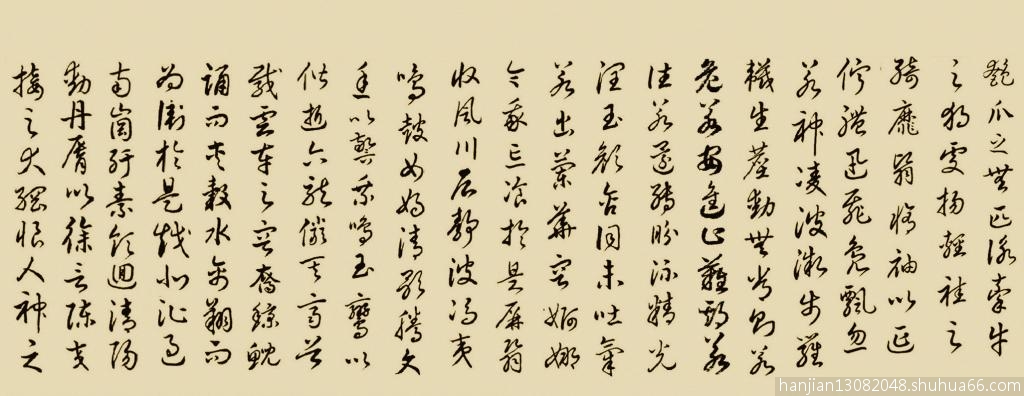 匏爪之無匹詠牽牛
之獨處揚輕袿之
綺靡翳脩袖以延
佇體迅飛鳧飄忽
若神凌波微步羅
襪生塵動無常則若
危若安進止難期若
往若還轉盼流精光
潤玉顏含詞未吐氣
若幽蘭華容婀娜
令我忘飡於是屏翳
收風川后靜波馮夷
鳴鼓女媧清歌騰文
魚以警乘鳴玉鸞以
偕逝六龍儼其齊首
載雲車之容裔鯨鯢
踊而夾轂水禽翔而
為衛於是越北沚過
南崗紆素領迴清陽
動丹脣以徐言陳交
接之大綱恨人神之
hanjian13082048.shuhua66.com